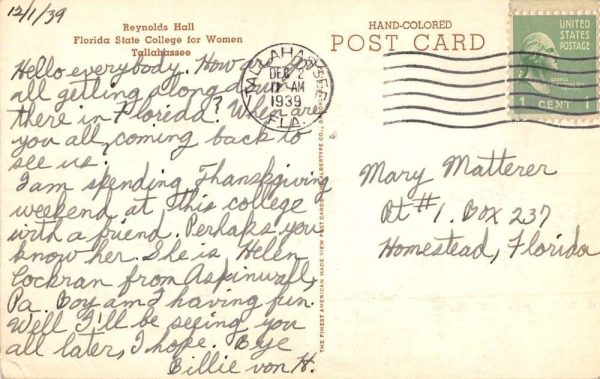 12/1/39
Reynolds Hall
Florida State College for Women
Tallahassee
Hello everybody. How are you
all getting along down
there in Florida? When are
you all coming back to
see us?
I am spending Thanksgiving
weekend at this college
with a friend. Perhaps you
know her. She is Helen
Cockran from Aspinwall,
Pa. Boy am I having fun.
Well I'll be seeing you
all later, I hope. Bye
Billie von H.
TALLAHASSEE
DEC 2
AM
1939
FLA.
THE FINEST AMERICAN MADE VIEW POST CARDS
ALBERTYPE CO.,
HAND-COLORED
POST CARD
UNITED
STATES
POSTAGE
1 CENT 1
Mary Matterer
Rt #1. Box 237
Homestead, Florida